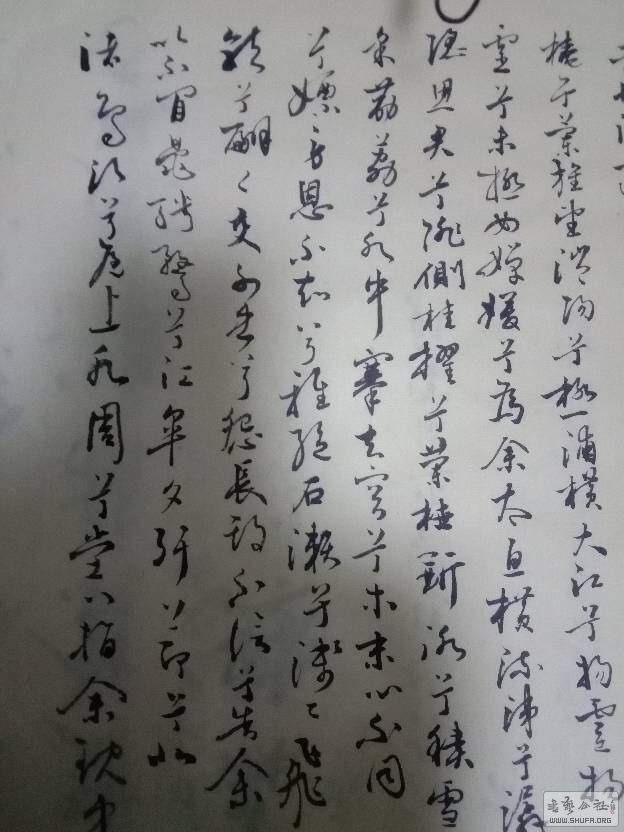 橈兮蘭旌望涔陽兮極浦横大江兮揚靈揚
靈兮未極女嬋媛兮為余太息横流涕兮潺
隱思君兮陫側桂櫂兮蘭枻斲冰兮積雪
采薜荔兮水中搴芙蓉兮木末心不同
兮媒勞恩不甚兮輕絶石瀨兮淺〻飛
龍兮翩〻交不忠兮怨長期不信兮告余
以不閒鼂騁騖兮江皋夕弭節兮北
渚鳥次兮屋上水周兮堂下捐余玦
书艺公社
WWW.SHUFA.ORG